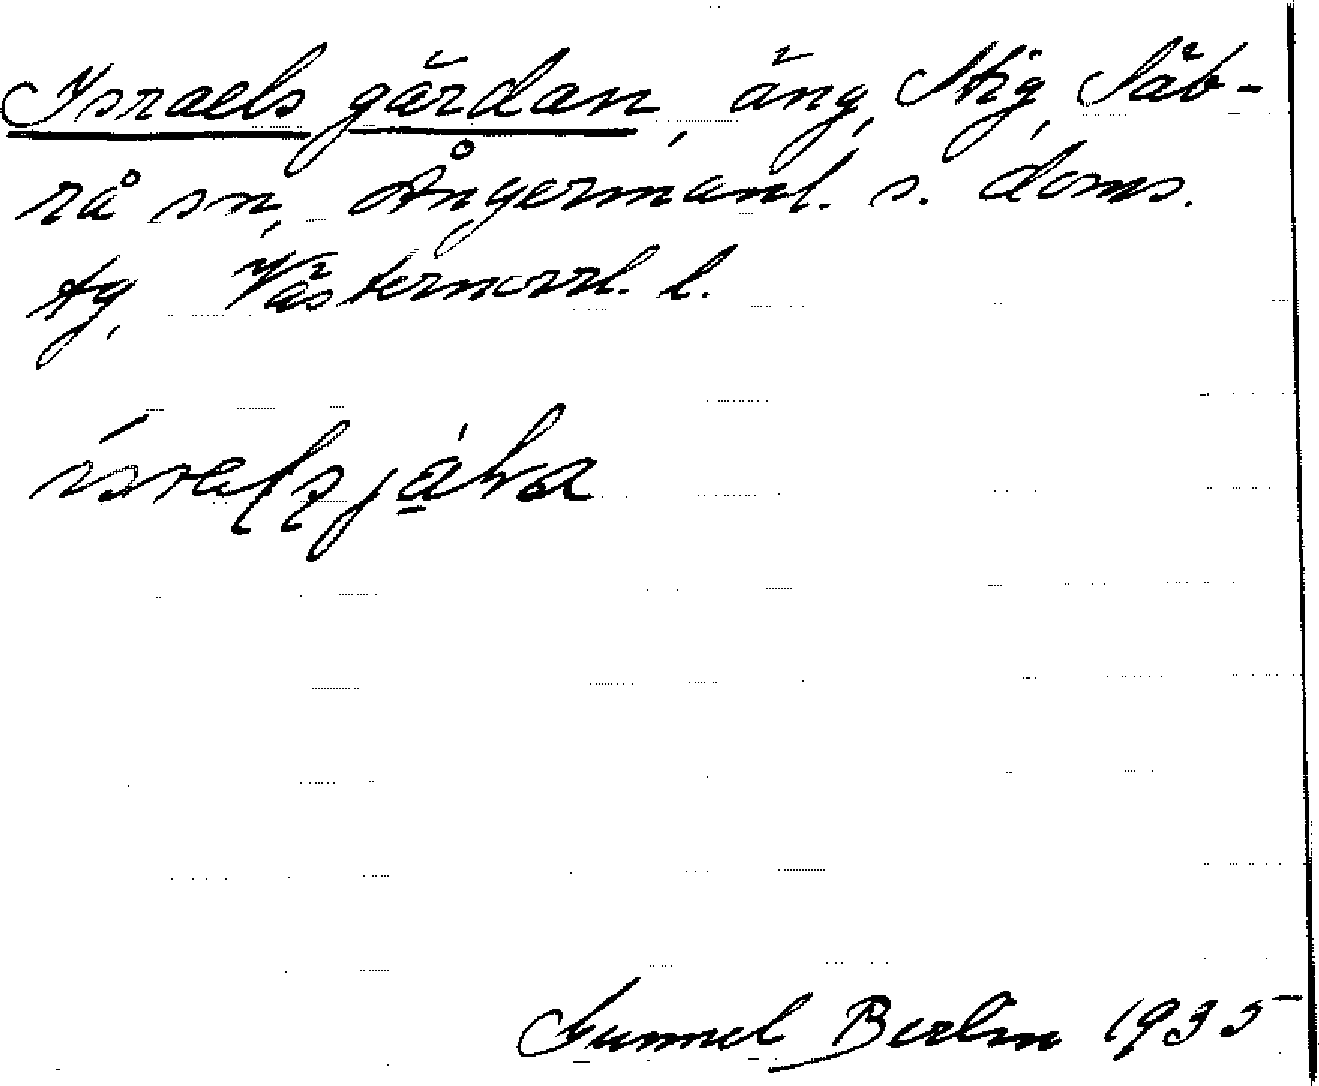 Israels gärdan, äng, Stig, Säb-
rå sn, Ångermanl. s. doms.
tg, Västernorrl. l.
Gunnel Berlin 1935